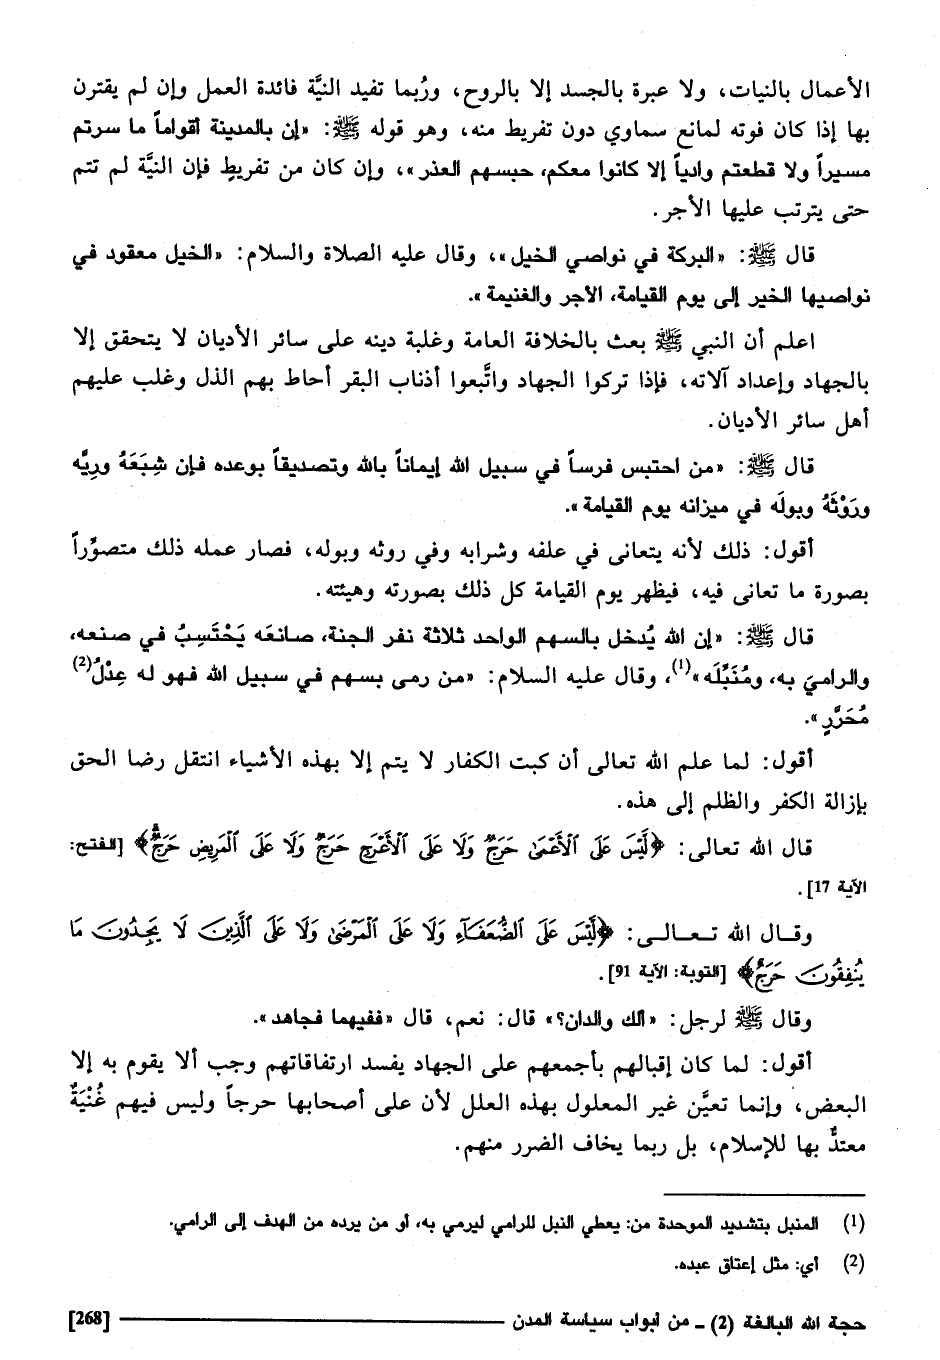 الأعمال بالنيات، ولا عبرة بالجسد إلا بالروح، ورُبما تفيد النيَّة فائدة العمل وإن لم يقترن
بها إذا كان فوته لمانع سماوي دون تفريط منه، وهو قوله ﷺ: «إن بالمدينة أقواماً ما سرتم
مسيراً ولا قطعتم وادياً إلا كانوا معكم، حبسهم العذر»، وإن كان من تفريطٍ فإن النيَّة لم تتم
حتى يترتب عليها الأجر.
قال ﷺ: «البركة في نواصي الخيل»، وقال عليه الصلاة والسلام: «الخيل معقود في
نواصيها الخير إلى يوم القيامة، الأجر والغنيمة».
اعلم أن النبي ﷺ بعث بالخلافة العامة وغلبة دينه على سائر الأديان لا يتحقق إلا
بالجهاد وإعداد آلاته، فإذا تركوا الجهاد واتَّبعوا أذناب البقر أحاط بهم الذل وغلب عليهم
أهل سائر الأديان.
قال ﷺ: «من احتبس فرساً في سبيل الله إيماناً بالله وتصديقاً بوعده فإن شِبَعَهُ وريَّه
ورَوْثَهُ وبولَه في ميزانه يوم القيامة».
أقول: ذلك لأنه يتعانى في علفه وشرابه وفي روثه وبوله، فصار عمله ذلك متصوِّراً
بصورة ما تعانى فيه، فيظهر يوم القيامة كل ذلك بصورته وهيئته.
قال ﷺ: «إن الله يُدخل بالسهم الواحد ثلاثة نفر الجنة، صانعَه يَحْتَسِبُ في صنعه،
والراميَ به، ومُنَبِّلَه»(1)، وقال عليه السلام: «من رمى بسهم في سبيل الله فهو له عِدْلُ(2)
مُحَرَّرٍ».
أقول: لما علم الله تعالى أن كبت الكفار لا يتم إلا بهذه الأشياء انتقل رضا الحق
بإزالة الكفر والظلم إلى هذه.
قال الله تعالى: ﴿لَّيْسَ عَلَى ٱلْأَعْمَىٰ حَرَجٌ وَلَا عَلَى ٱلْأَعْرَجِ حَرَجٌ وَلَا عَلَى ٱلْمَرِيضِ حَرَجٌ﴾ [الفتح:
الآية 17].
وقـال الله تـعـالـى: ﴿لَّيْسَ عَلَى ٱلضُّعَفَآءِ وَلَا عَلَى ٱلْمَرْضَىٰ وَلَا عَلَى ٱلَّذِينَ لَا يَجِدُونَ مَا
يُنفِقُونَ حَرَجٌ﴾ [التوبة: الآية 91].
وقال ﷺ لرجل: «ألك والدان؟» قال: نعم، قال «ففيهما فجاهد».
أقول: لما كان إقبالهم بأجمعهم على الجهاد يفسد ارتفاقاتهم وجب ألا يقوم به إلا
البعض، وإنما تعيَّن غير المعلول بهذه العلل لأن على أصحابها حرجاً وليس فيهم غُنْيَةٌ
معتدٌّ بها للإسلام، بل ربما يخاف الضرر منهم.
(1) المنبل بتشديد الموحدة من: يعطي النبل للرامي ليرمي به، أو من يرده من الهدف إلى الرامي.
(2) أي: مثل إعتاق عبده.
حجة الله البالغة (2) ـ من أبواب سياسة المدن [268]